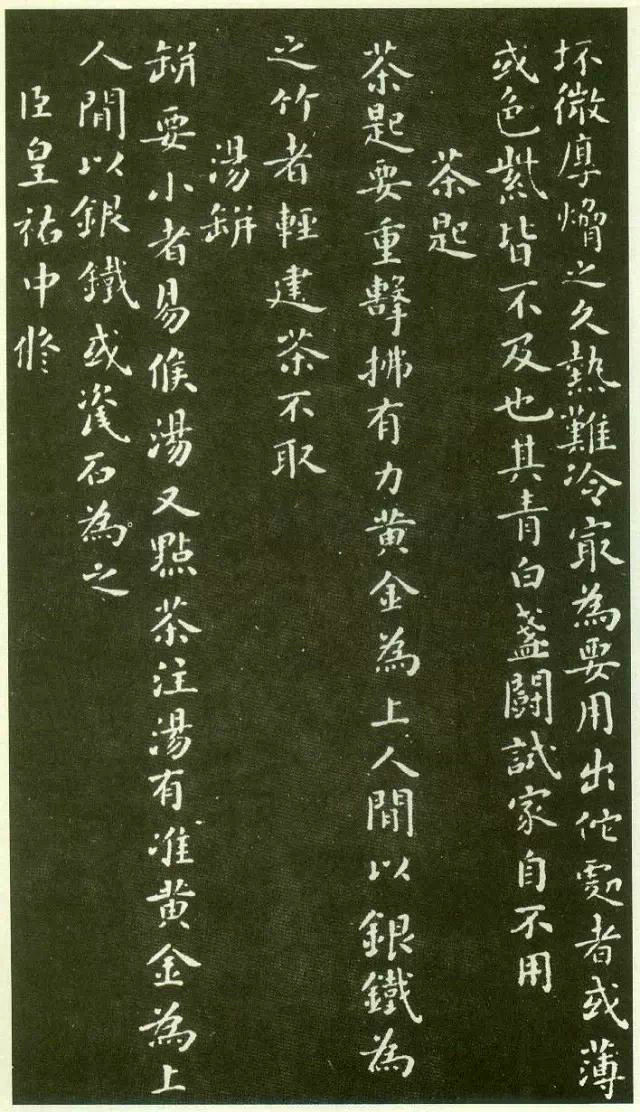 坯微厚熁之久熱難冷㝡為要用出佗處者或薄
或色紫皆不及也其青白盞鬭試家自不用
茶匙
茶匙要重擊拂有力黄金為上人間以銀鐵為
之竹者輕建茶不取
湯缾
缾要小者易候湯又點茶注湯有准黄金為上
人間以銀鐵或瓷石為之
臣皇祐中脩